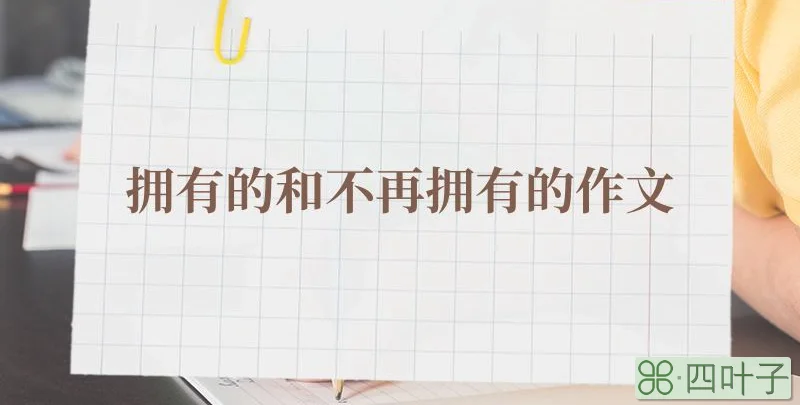 拥有的和不再拥有的作文
四叶子